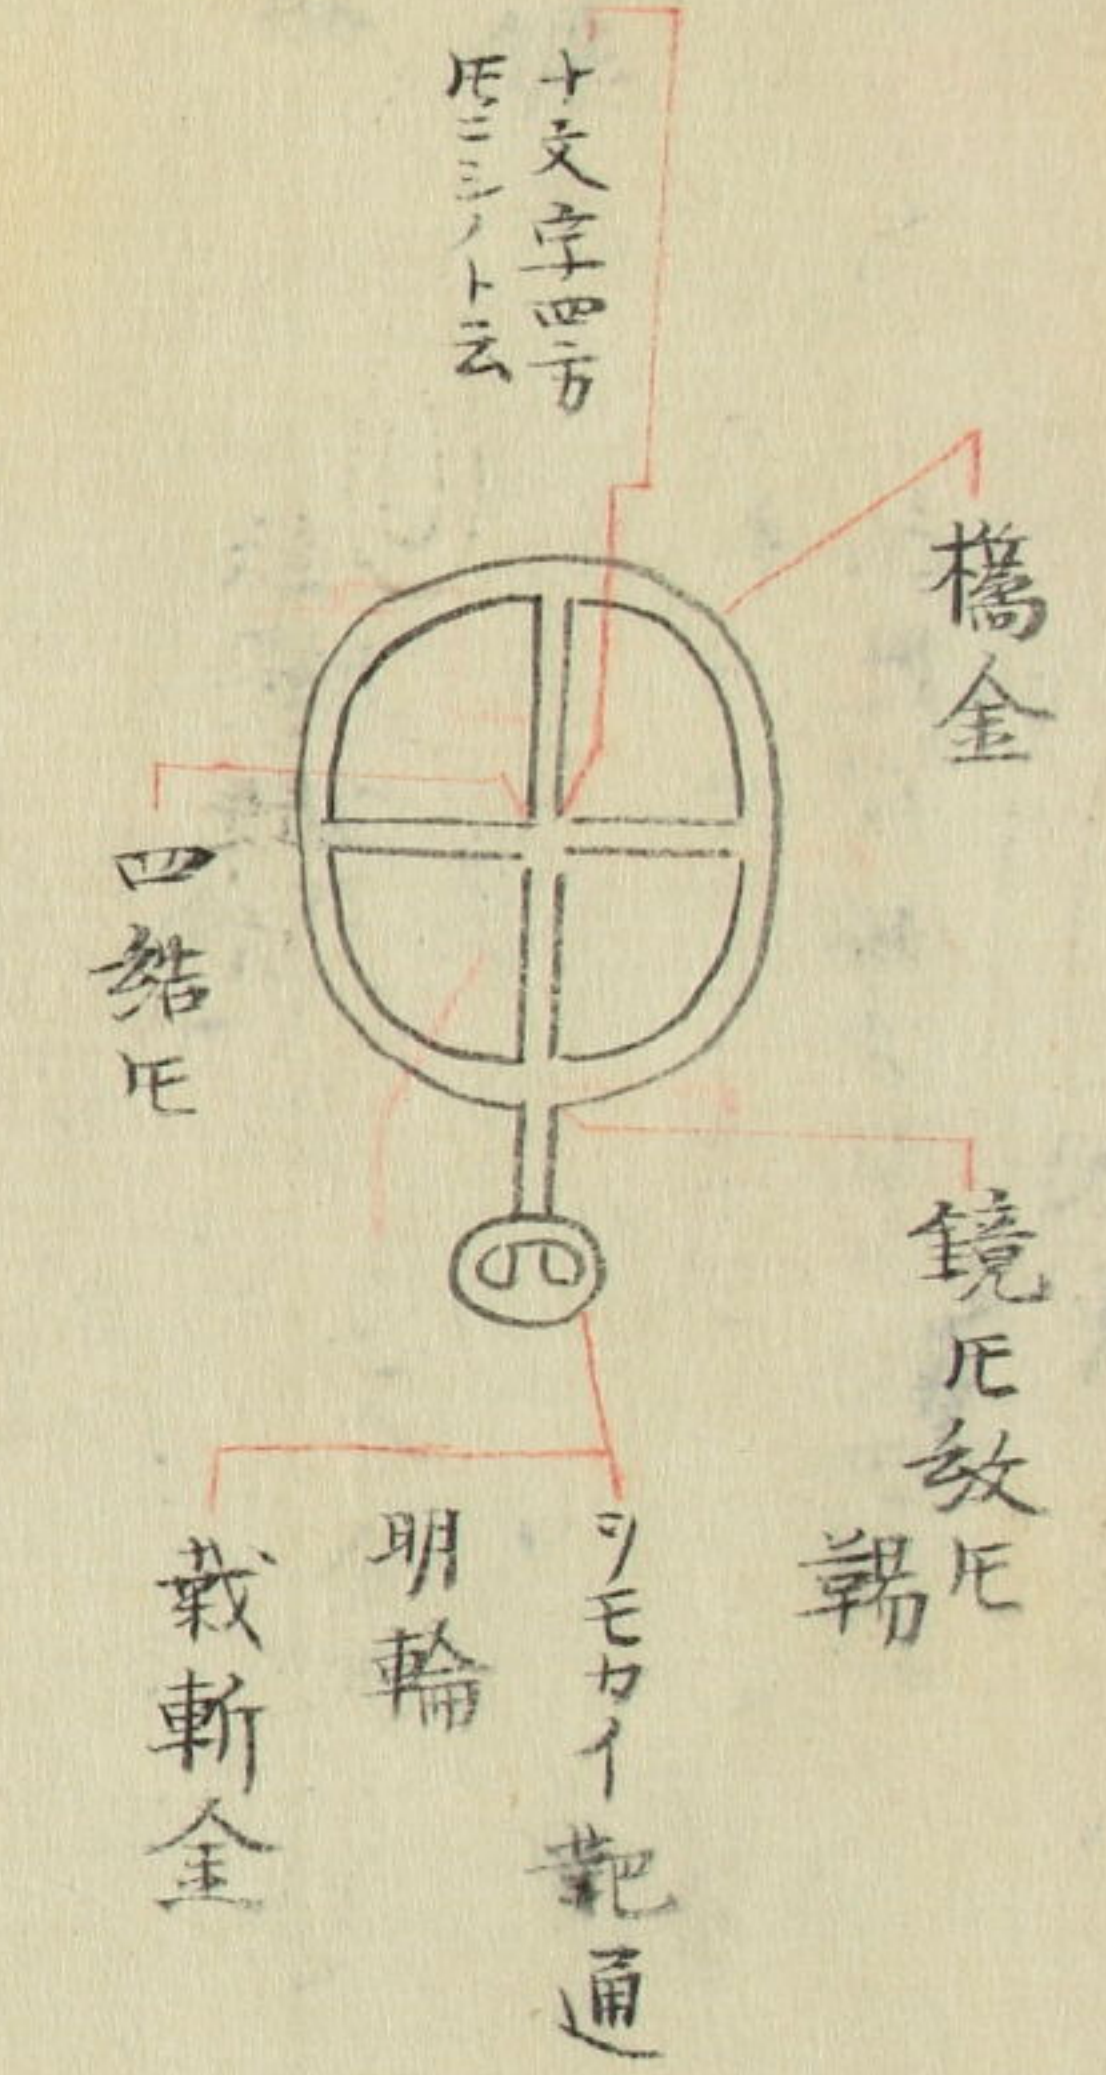 十文字四方
𪜈ニシノト云
橋金
四結𪜈
鏡𪜈紋𪜈
鞨
シモカイ靶通
明輪
蕀斬金